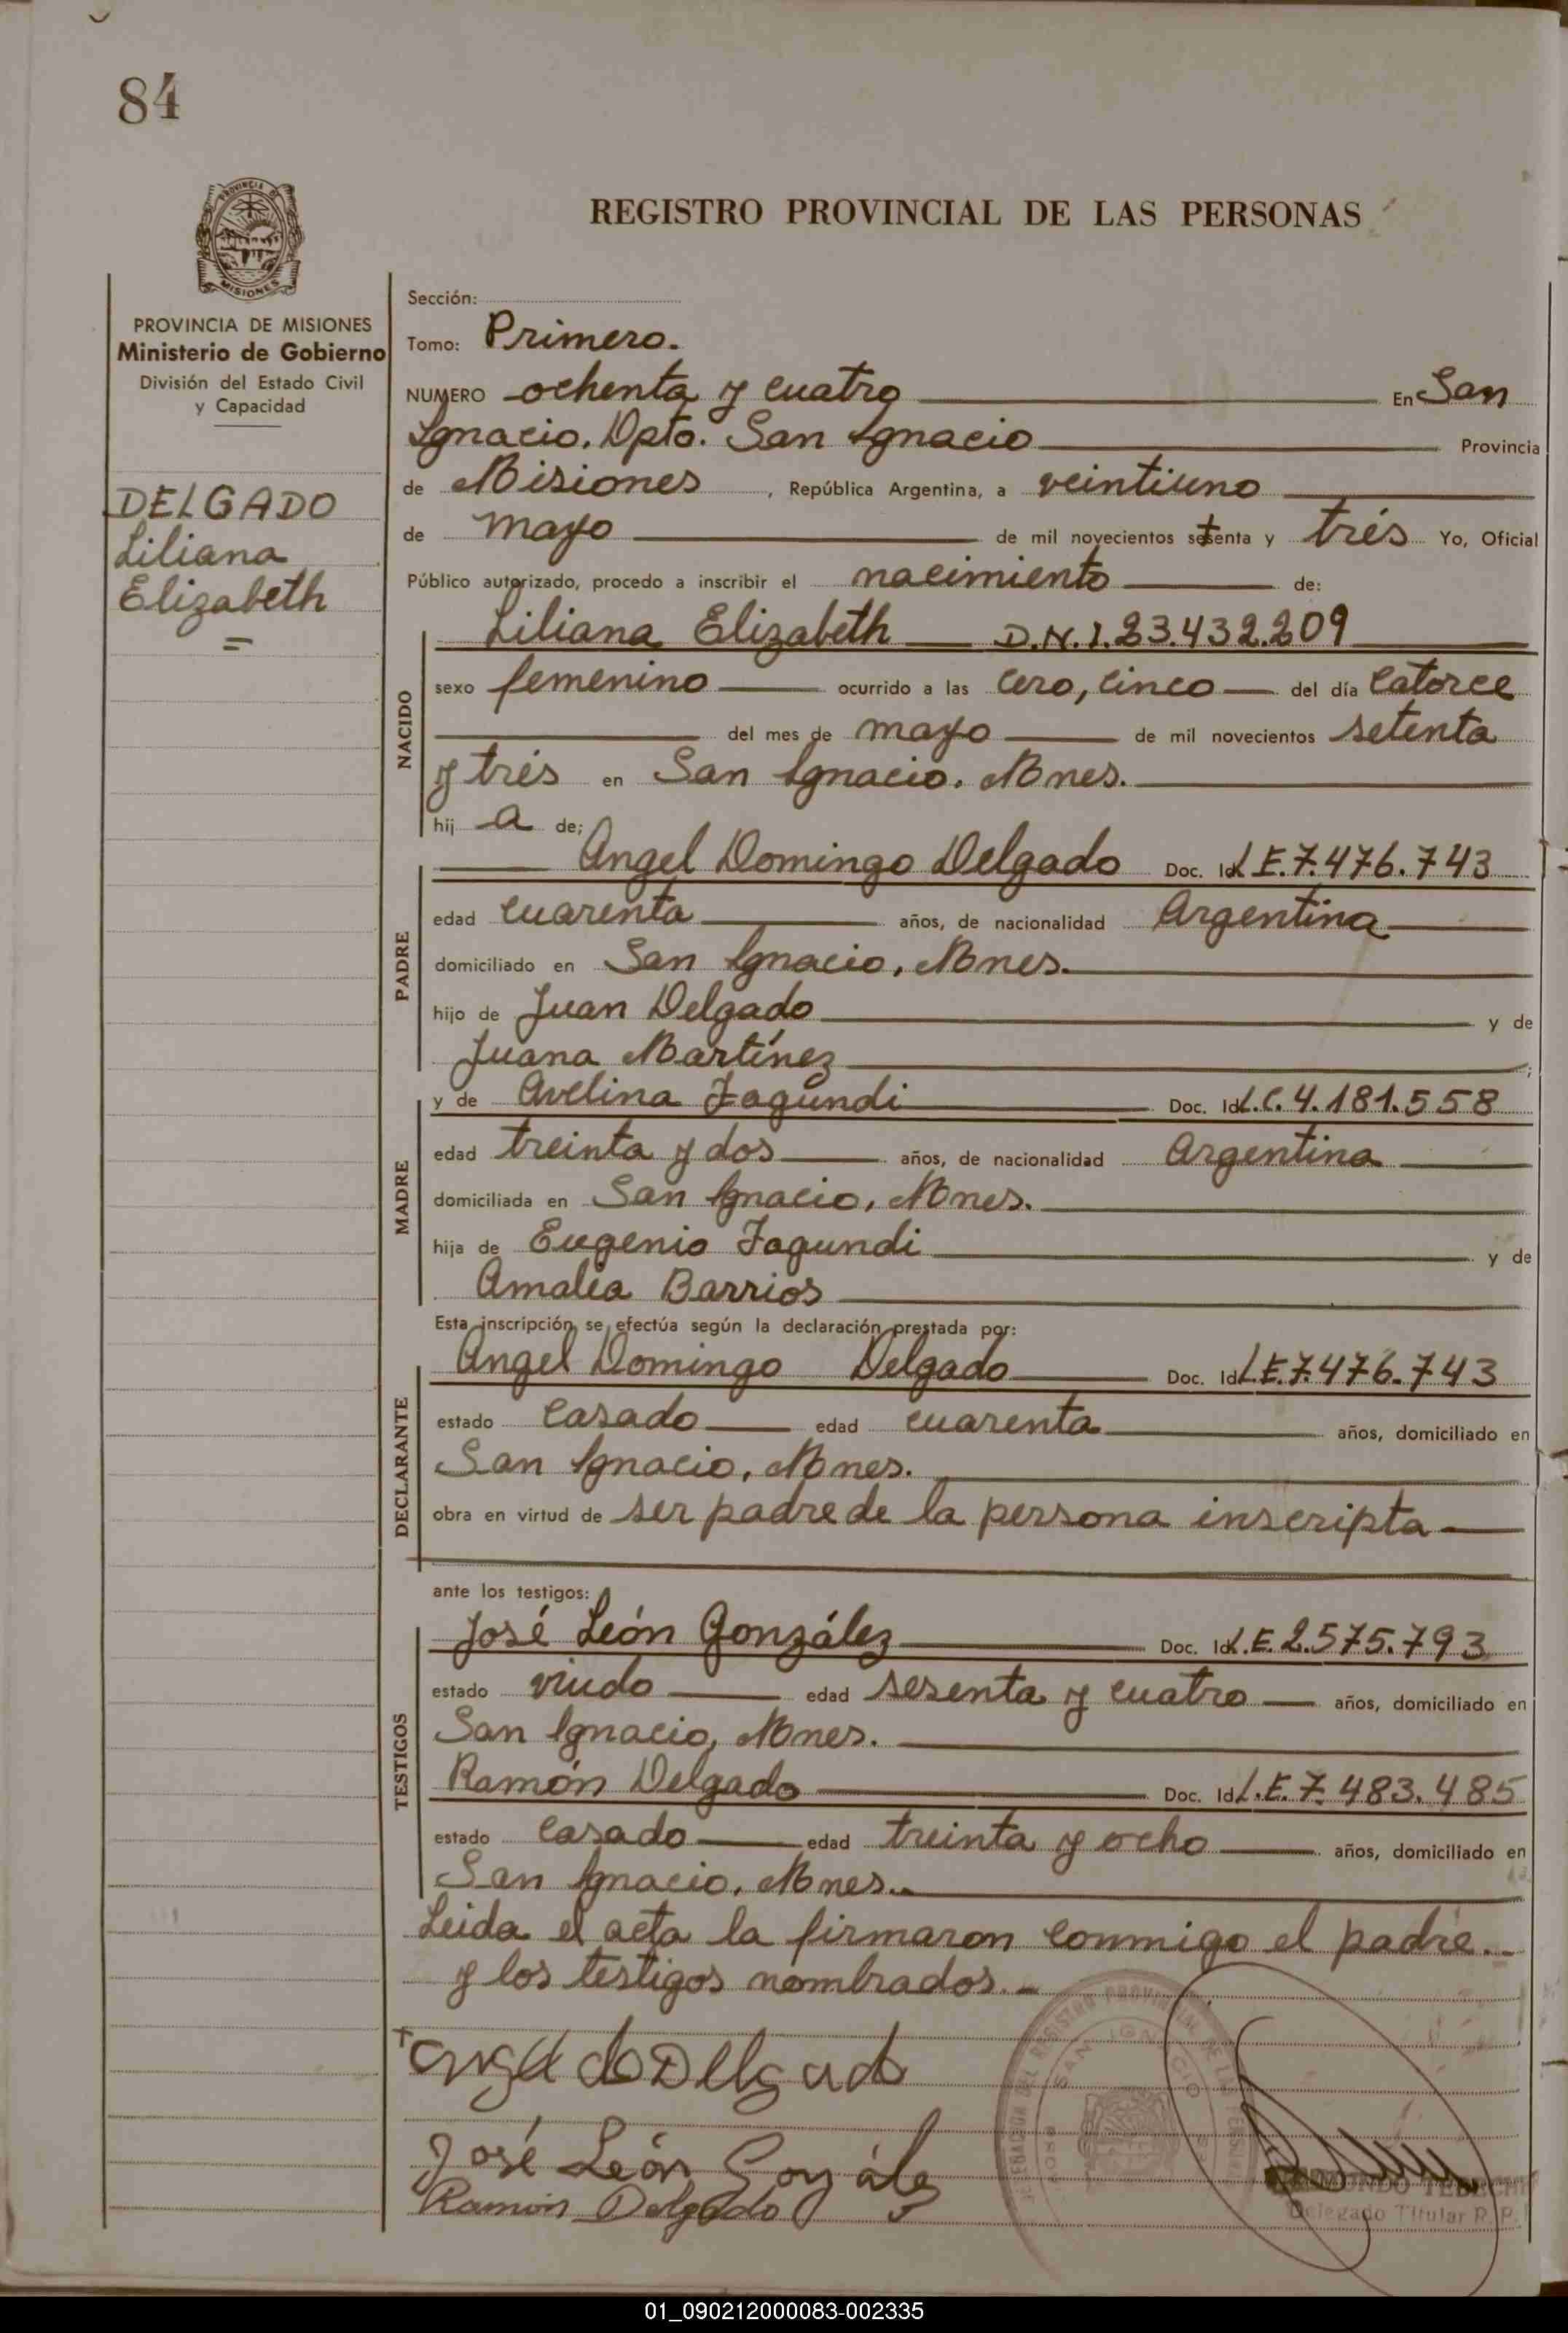 84
PROVINCIA DE
MISIONES
REGISTRO PROVINCIAL DE LAS PERSONAS
PROVINCIA DE MISIONES
Ministerio de Gobierno
División del Estado Civil
y Capacidad
DELGADO
Liliana
Elizabeth
Sección:
Tomo: Primero.
NUMERO ochenta y cuatro En San
Ignacio, Dpto. San Ignacio Provincia
de Misiones, República Argentina, a veintiuno
de mayo de mil novecientos setenta y trés Yo, Oficial
Público autorizado, procedo a inscribir el nacimiento de:
NACIDO
Liliana Elizabeth D.N.I. 23.432.209
sexo femenino ocurrido a las cero, cinco del día catorce
del mes de mayo de mil novecientos setenta
y trés en San Ignacio, Mnes.
hij a de;
PADRE
Angel Domingo Delgado Doc. Id. L.E. 7.476.743
edad cuarenta años, de nacionalidad Argentina
domiciliado en San Ignacio, Mnes.
hijo de Juan Delgado y de
Juana Martínez;
MADRE
y de Avelina Fagundi Doc. Id. L.C. 4.181.558
edad treinta y dos años, de nacionalidad Argentina
domiciliada en San Ignacio, Mnes.
hija de Eugenio Fagundi y de
Amalia Barrios
Esta inscripción se efectúa según la declaración prestada por:
DECLARANTE
Angel Domingo Delgado Doc. Id. L.E. 7.476.743
estado casado edad cuarenta años, domiciliado en
San Ignacio, Mnes.
obra en virtud de ser padre de la persona inscripta
ante los testigos:
TESTIGOS
José León González Doc. Id. L.E. 2.575.793
estado viudo edad sesenta y cuatro años, domiciliado en
San Ignacio, Mnes.
Ramón Delgado Doc. Id. L.E. 7.483.485
estado casado edad treinta y ocho años, domiciliado en
San Ignacio, Mnes.
Leida el acta la firmaron conmigo el padre
y los testigos nombrados.
Delgado
José León
Ramón Delgado
REGISTRO PROVINCIAL DE LAS
SAN IGNACIO
Delegado Titular R. P.
01_090212000083-002335